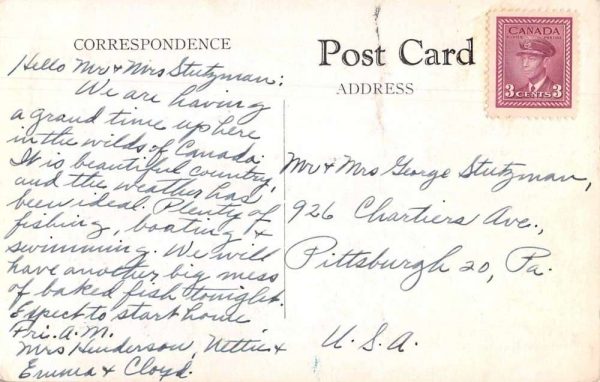 CORRESPONDENCE
Post Card
ADDRESS
CANADA
POSTES POSTAGE
3 CENTS 3
Hello Mr & Mrs Stutzman:
We are having
a grand time up here
in the wilds of Canada.
It is beautiful country,
and the weather has
been ideal. Plenty of
fishing, boating &
swimming. We will
have another big mess
of baked fish tonight.
Expect to start home
Fri. A.M.
Mrs Henderson, Nettie &
Emma & Cloyd.
Mr & Mrs George Stutzman,
926 Chartiers Ave.,
Pittsburgh 20, Pa.
U.S.A.